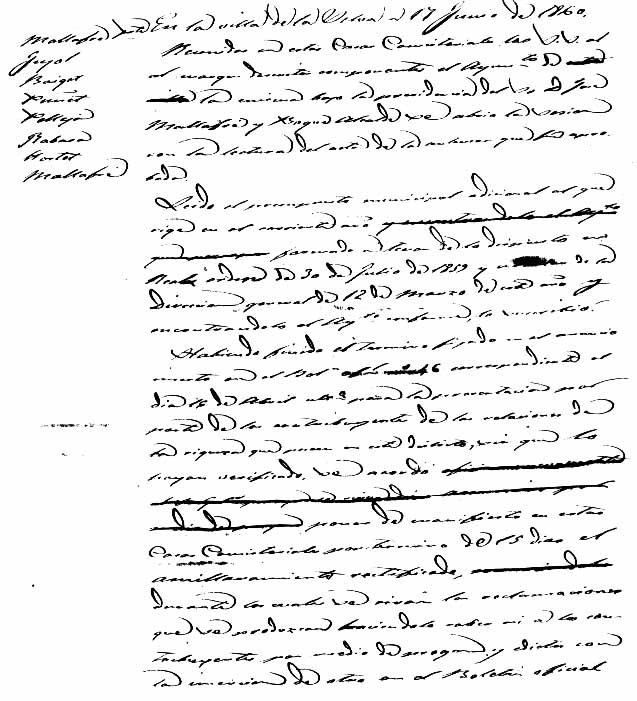 En la villa de la Selva a 17 Junio de 1860.
Mallafré
Pujol
Baiget
Puñet
Rabasa
Hortet
Mallafré
Reunidos en estas Casas Consistoriales los S.S. al
al margen componentes el Ayunto de
la misma bajo la presidencia del Sr D José
Mallafré y Alcalde se abrió la sesion
con la lectura del acta de la anterior que fue apro-
bada.
Leido el presupuesto municipal adicional al que
rige en el corriente año y
que formado a tenor de lo dispuesto en
Real orden de 30 de Julio de 1859 y de la
Direccion general de 12 de Marzo de este año y
encontrandolo el Ayto conforme, lo suscribió.
Habiendo finido el termino fijado en el anuncio
inserto en el Bol. correspondiente al
dia 14 de Abril ulto para la presentacion por
parte de los contribuyentes de las relaciones de
la riqueza que poseen en este distrito, sin que lo
hayan verificado, se acordó
poner de manifiesto en estas
Casas Consistoriales por termino de 15 dias el
amillaramiento rectificado,
durante los cuales se oiran las reclamaciones
que se produzcan haciendolo saber a los con-
tribuyentes por medio de pregon y edictos con
la insercion de otro en el Boletin oficial